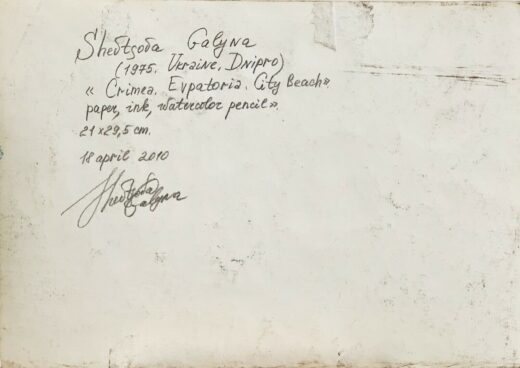 Shevtsova Galyna
(1975. Ukraine. Dnipro)
« Crimea. Evpatoria. City Beach»
paper, ink, watercolor pencil».
21x29,5 cm.
18 april 2010
Shevtsova
Galyna